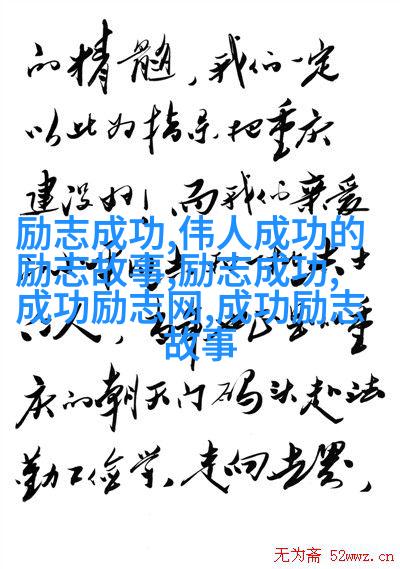 的精髓，我们一定
以此为指导把重庆
建设好！而我们亲爱
励志成功,伟人成功的
励志故事,励志成功,
成功励志网,成功励志
故事
人，
重
庆的朝天门码头赴法
勤工俭学，走向世界，
无为斋 52wwz.cn